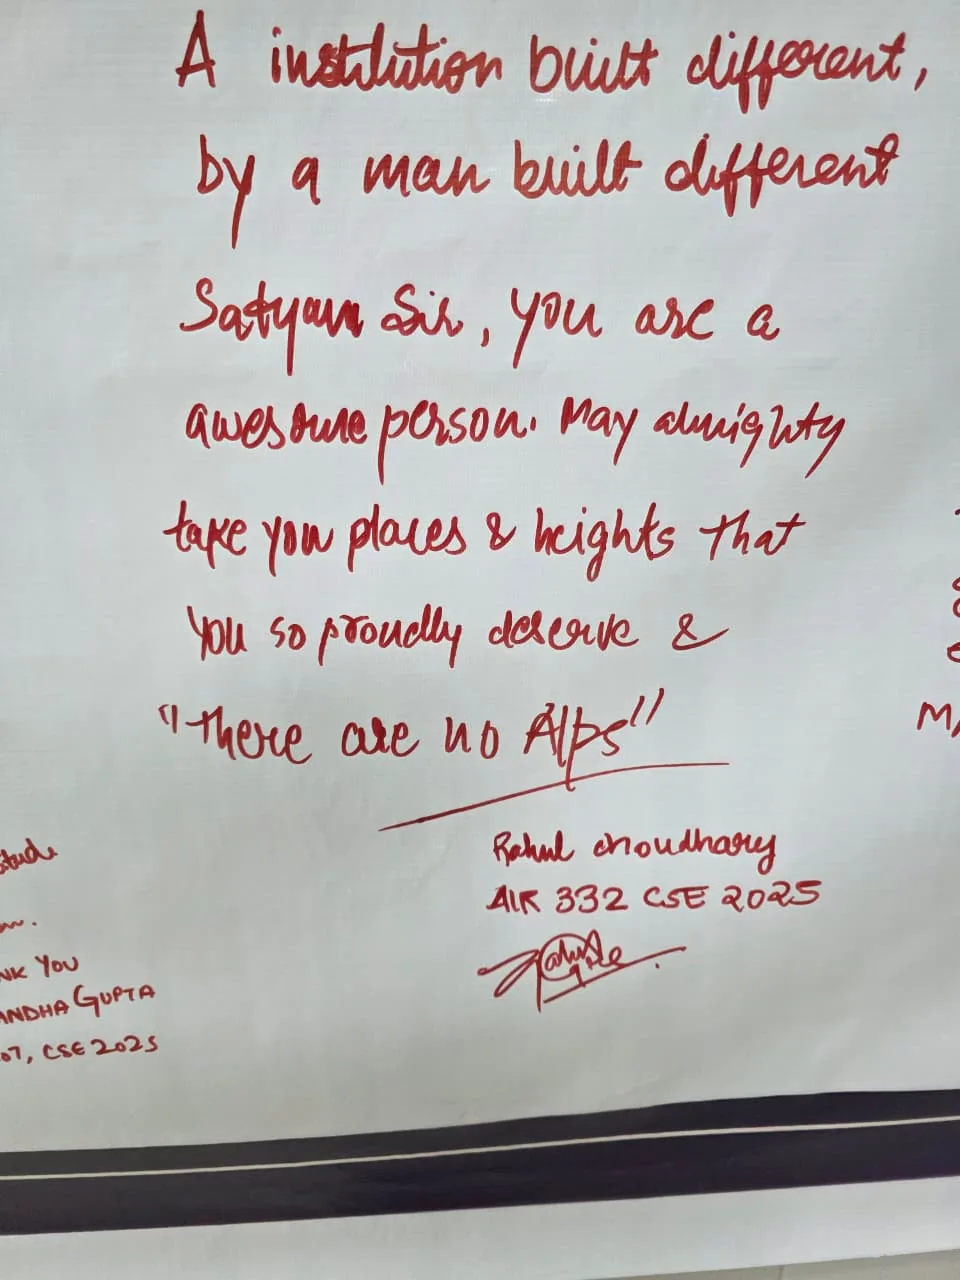 A institution built different,
by a man built different
Satyam Sir, you are a
awesome person. May almighty
take you places & heights that
you so proudly deserve &
"There are no Alps"
Rahul Choudhary
AIR 332 CSE 2025
NK YOU
ANDHA GUPTA
07, CSE 2025